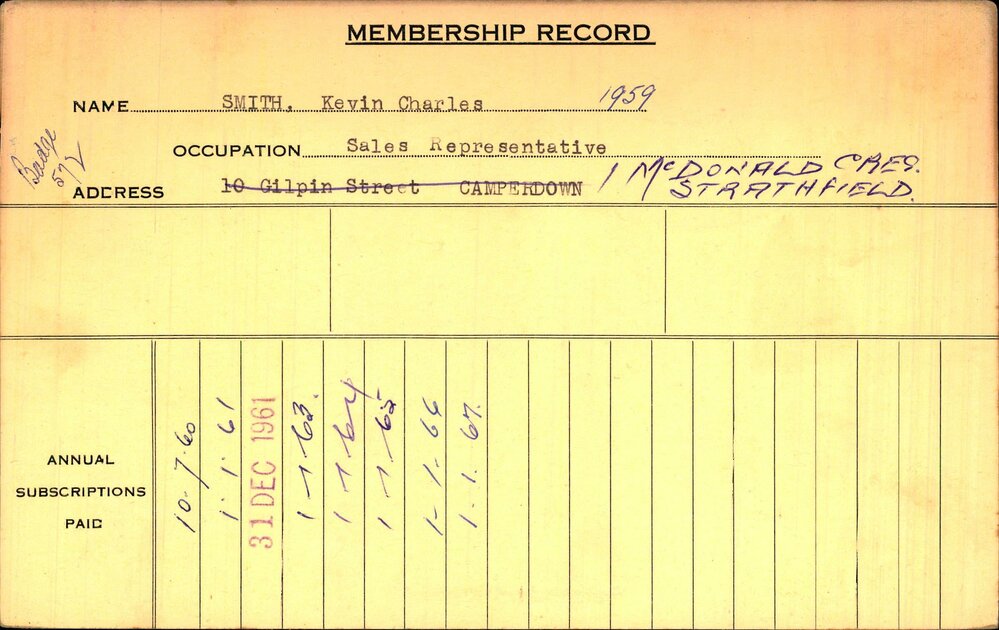 MEMBERSHIP RECORD
NAME SMITH, Kevin Charles 1959
Badge 572
OCCUPATION Sales Representative
ADDRESS 10 Gilpin Street CAMPERDOWN 1 McDONALD CRES.
STRATHFIELD.
ANNUAL
SUBSCRIPTIONS
PAID
10-7-60
1-1-61
31 DEC 1961
1-1-63.
1-1-64
1-1-65
1-1-66
1.1.67.